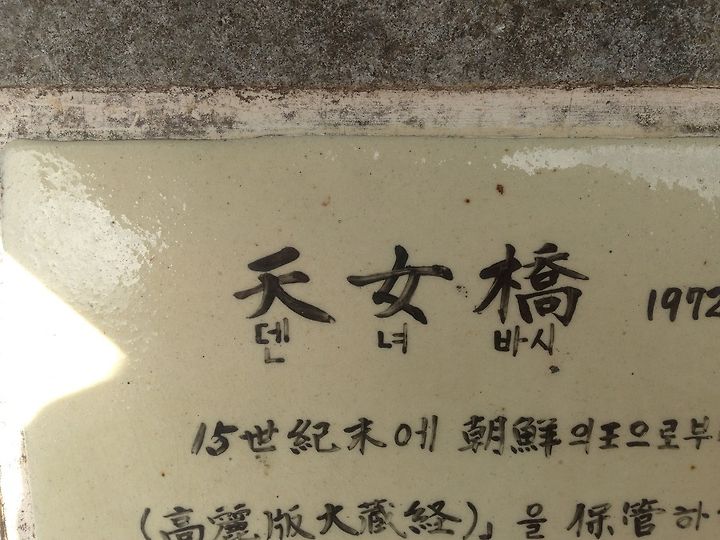 天女橋 1972
덴 녀 바시
15世紀末에 朝鮮의王으로부
(高麗版大蔵経)」을 保管하